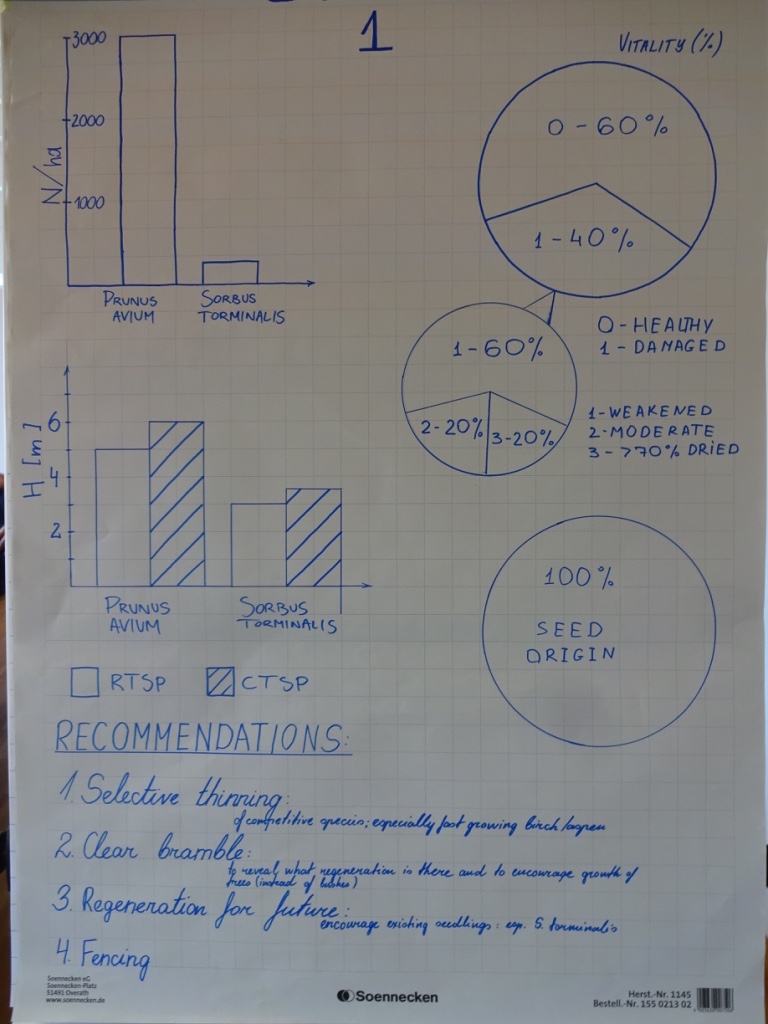 1
3000
2000
1000
N/ha
PRUNUS
AVIUM
SORBUS
TORMINALIS
VITALITY (%)
0 - 60%
1 - 40%
1 - 60%
2 - 20%
3 - 20%
0 - HEALTHY
1 - DAMAGED
1 - WEAKENED
2 - MODERATE
3 - >70% DRIED
H [m]
6
4
2
PRUNUS
AVIUM
SORBUS
TORMINALIS
RTSP
CTSP
100%
SEED
ORIGIN
RECOMMENDATIONS:
1. Selective thinning:
of competitive species; especially fast growing birch/aspen
2. Clear bramble:
to reveal what regeneration is there and to encourage growth of
trees (instead of bushes)
3. Regeneration for future:
encourage existing seedlings: esp. S. torminalis
4. Fencing
Soennecken eG
Soennecken-Platz
51491 Overath
www.soennecken.de
Soennecken
Herst.-Nr. 1145
Bestell.-Nr. 155 0213 02